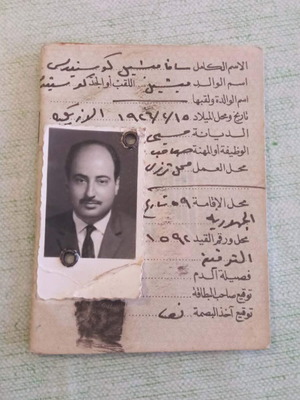 الاسم الكامل ساڤا ميشيل كوستنيدى
اسم الوالد ميشيل اللقب أو الجد كوستنيدى
اسم الوالدة ولقبها
تاريخ ومحل الميلاد ١٩٢٦/٢/١٥ الأزبكية
الديانة مسيحى
الوظيفة أو المهنة صاحب
محل العمل محل ترزى
محل الإقامة ٥٩ شارع
الجمهورية
محل ورقم القيد ١٥٩٢
فصيلة الدم
توقيع صاحب البطاقة
توقيع آخذ البصمة